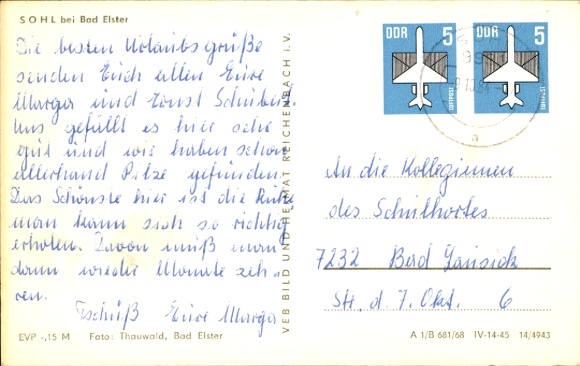 SOHL bei Bad Elster
Die besten Urlaubsgrüße
senden Euch allen Eure
Marga und Ernst
Uns gefällt es hier sehr
gut und wir haben schon
allerhand Pilze gefunden.
Das Schönste hier ist die Ruhe
man kann sich so richtig
erholen. Davon muß man
dann wieder Monate zeh=
ren.
Tschüß Eure Marga
EVP -,15 M Foto: Thauwald, Bad Elster
VEB BILD UND HEIMAT REICHENBACH I. V.
DDR 5
LUFTPOST
DDR 5
LUFTPOST
An die Kolleginnen
des Schulhortes
7232 Bad Lausick
Str. d. 7. Okt. 6
A 1/B 681/68 IV-14-45 14/4943